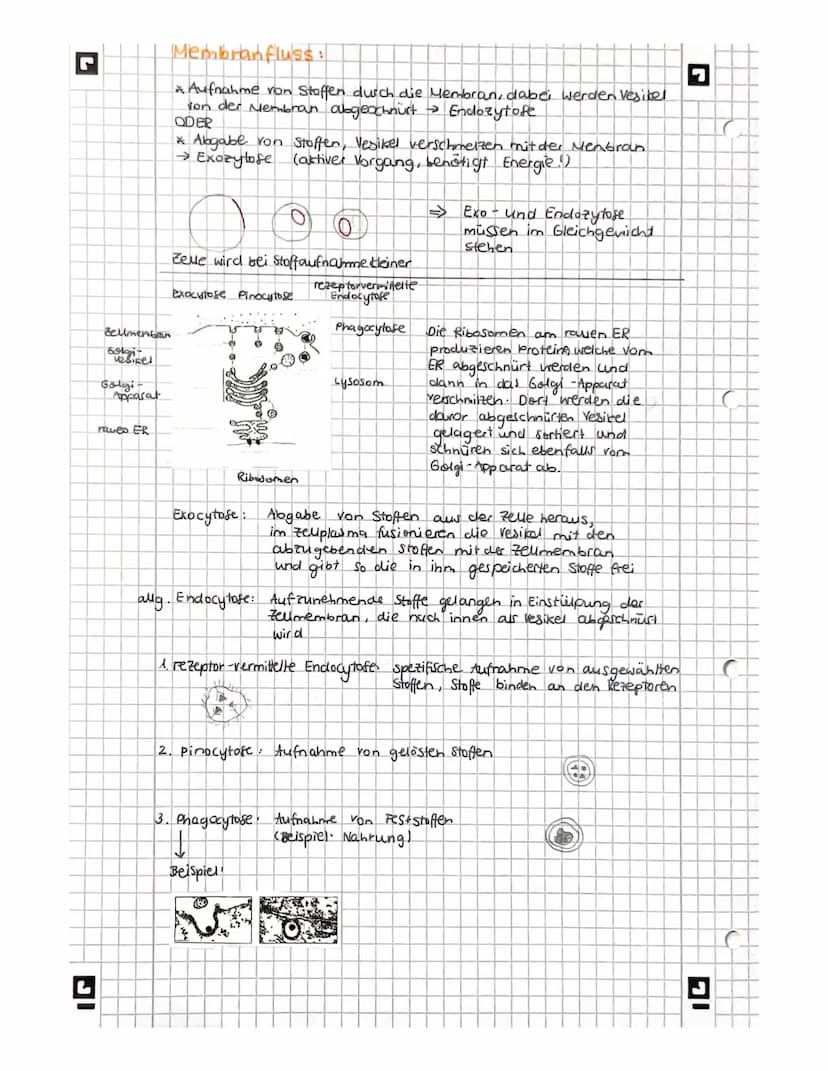 Membranfluss:
* Aufnahme von Stoffen durch die Membran, dabei werden Vesikel
von der Membran abgeschnürt → Endozytose
ODER
* Abgabe von Stoffen, Vesikel verschmelzen mit der Menbran
→ Exozytose (aktiver Vorgang, benötigt Energie!)
⇒ Exo- und Endozytose
müssen im Gleichgewicht
stehen
Zelle wird bei Stoffaufnahme kleiner
Exocytose Pinocytose rezeptorvermittelte
Endocytose
Zellmembran
Golgi-
vesikel
Golgi-
Apparat
raues ER
Phagocytose
Lysosom
Ribosomen
Die Ribosomen am rauen ER
produzieren Proteine, welche vom
ER abgeschnürt werden und
dann in das Golgi-Apparat
verschmilzen. Dort werden die
davor abgeschnürten Vesikel
gelagert und sortiert und
schnüren sich ebenfalls vom
Golgi-Apparat ab.
Exocytose: Abgabe von Stoffen aus der Zelle heraus,
im Zellplasma fusionieren die Vesikel mit den
abzugebenden Stoffen mit der Zellmembran
und gibt so die in ihm gespeicherten Stoffe frei
allg. Endocytose: Aufzunehmende Stoffe gelangen in Einstülpung der
Zellmembran, die nach innen als Vesikel abgeschnürt
wird
1. rezeptor-vermittelte Endocytose: spezifische Aufnahme von ausgewählten
Stoffen, Stoffe binden an den Rezeptoren
2. Pinocytose: Aufnahme von gelösten Stoffen
3. Phagocytose: Aufnahme von Feststoffen
(Beispiel: Nahrung)
Beispiel: